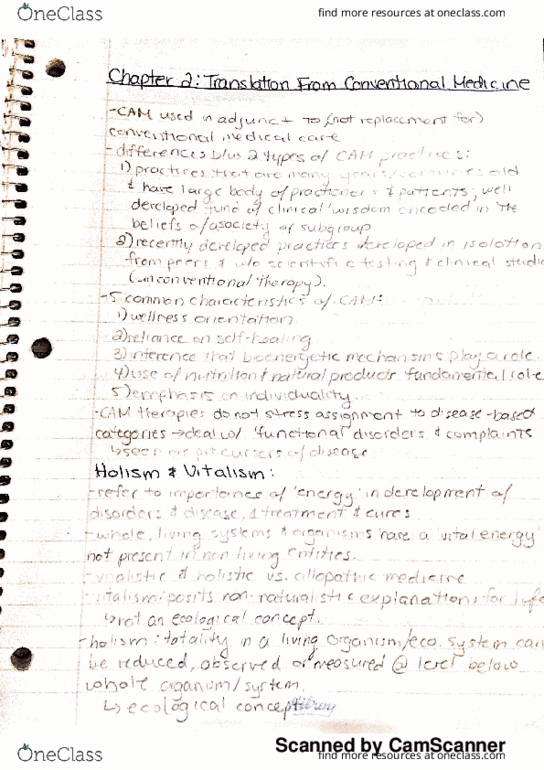 OneClass
find more resources at oneclass.com
Chapter 2: Translation From Conventional Medicine
-CAM used in adjunct to (not replacement for)
conventional medical care
-differences btus 2 types of CAM practices:
1) practices that are many years/centuries old
& have large body of practioners & patients, well
developed fund of clinical wisdom encoded in the
beliefs of a society or subgroup
2) recently developed practices developed in isolation
from peers & w/o scientific testing & clinical studie
(unconventional therapy).
-5 common characteristics of CAM:
1) wellness orientation
2) reliance on self-healing
3) inference that bioenergetic mechanisms play a role.
4) use of nutrition & natural products fundamental role
5) emphasis on individuality.
-CAM therapies do not stress assignment to disease-based
categories → deal w/ 'functional' disorders & complaints
↳ seen as precursers of disease
Holism & Vitalism:
-refer to importance of 'energy' in development of
disorders & disease, & treatment & cures
-whole, living systems & organisms have a 'vital energy'
not present in non living entities.
-vitalistic & holistic vs. allopathic medicine
-vitalism: posits non-naturalistic explanations for life
↳ not an ecological concept.
-holism: totality in a living organism/eco. system can
be reduced, observed or measured @ level below
whole organism/system.
↳ ecological concept
Scanned by CamScanner
OneClass
find more resources at oneclass.com